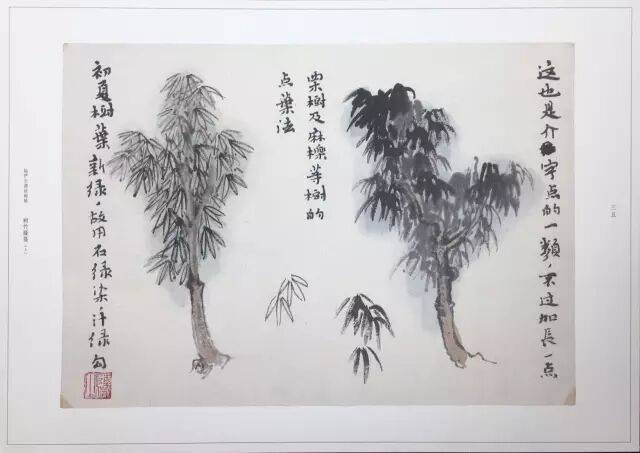 三五
这也是介字点的一類，不过加長一点
栗樹及麻櫟等樹的
点葉法
初夏樹葉新绿，故用石绿染，汁绿勾